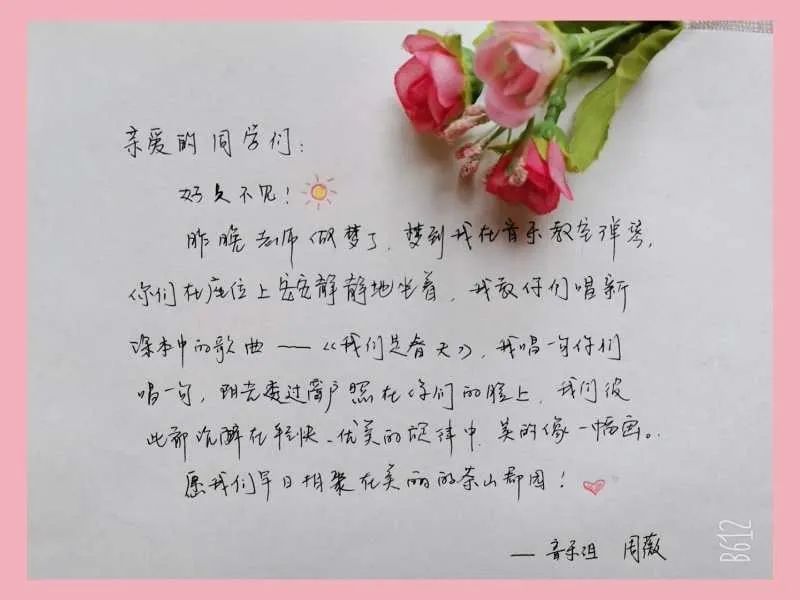 亲爱的同学们：
好久不见！
昨晚老师做梦了，梦到我在音乐教室弹琴，
你们在座位上安安静静地坐着，我教你们唱新
课本中的歌曲——《我们是春天》，我唱一句你们
唱一句，阳光透过窗户照在你们的脸上，我们彼
此都沉醉在轻快、优美的旋律中，美的像一幅画。
愿我们早日相聚在美丽的茶山郡园！
—音乐组 周薇
B612